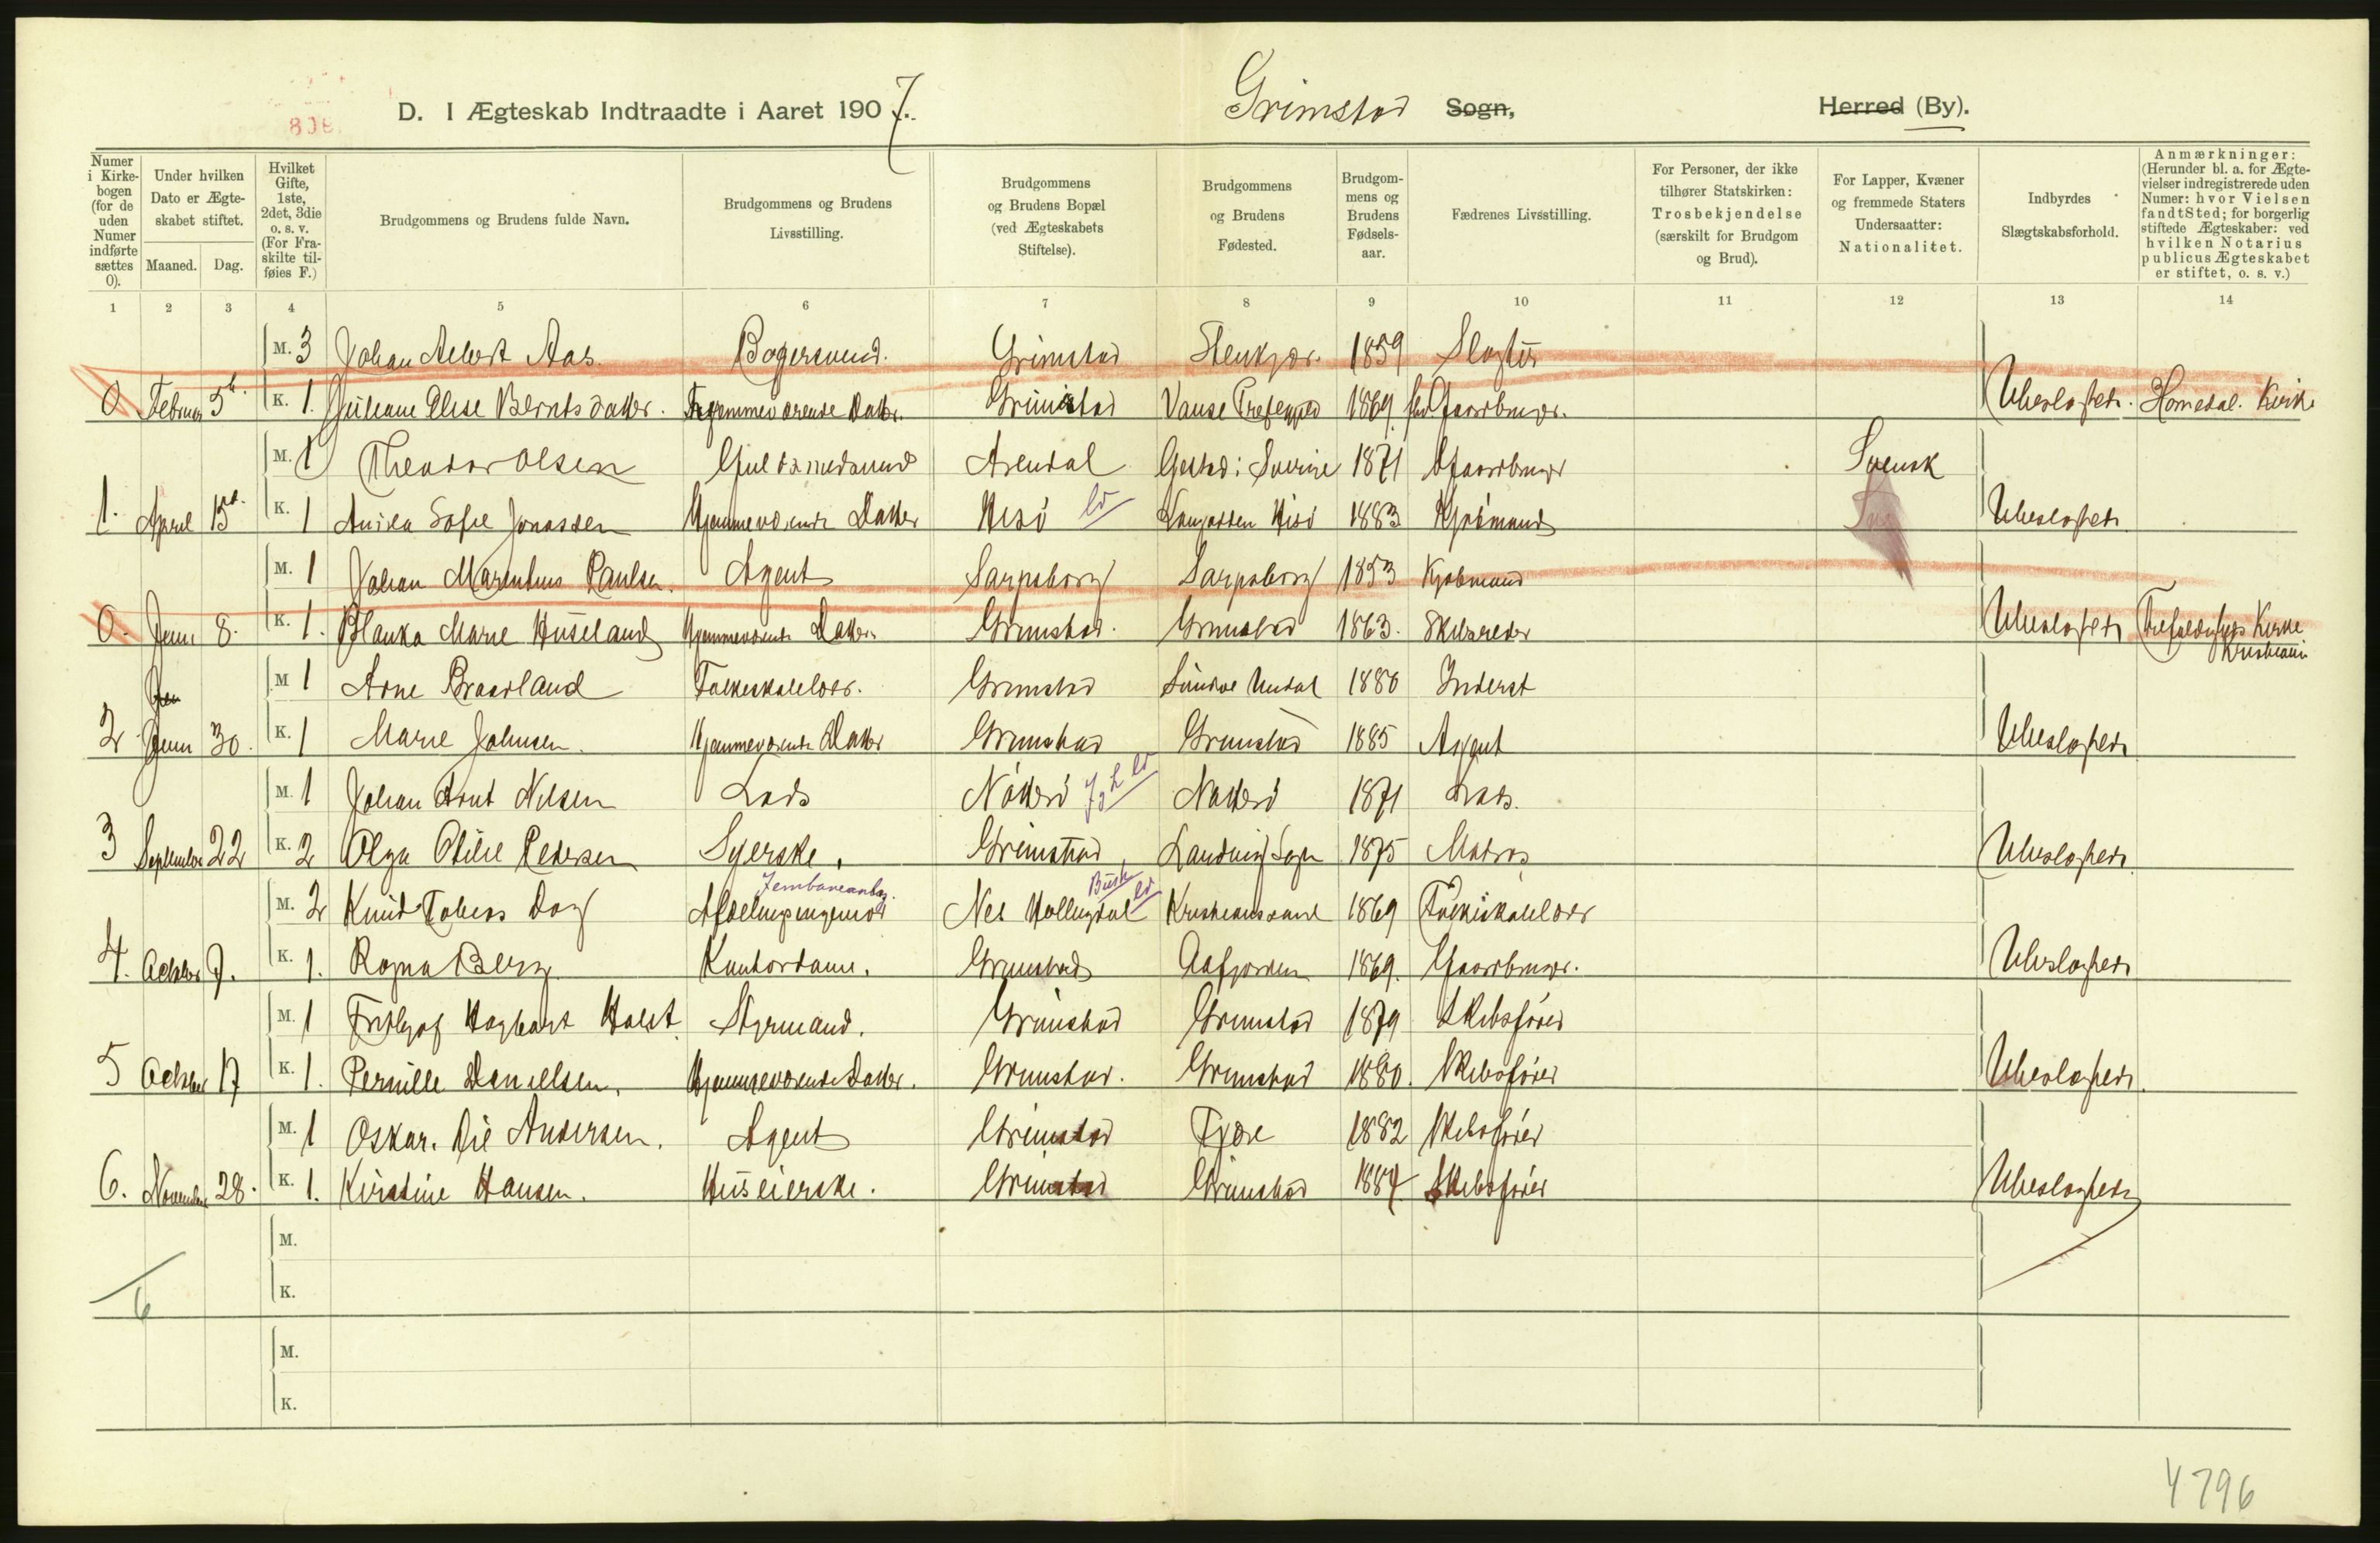 D. I Ægteskab Indtraadte i Aaret 1907. Grimstad Sogn, Herred (By).
Numer i Kirkebogen (for de uden Numer indførte sættes 0).
Under hvilken Dato er Ægteskabet stiftet.
Maaned. Dag.
Hvilket Gifte, 1ste, 2det, 3die o. s. v. (For Fraskilte tilføies F.)
Brudgommens og Brudens fulde Navn.
Brudgommens og Brudens Livsstilling.
Brudgommens og Brudens Bopæl (ved Ægteskabets Stiftelse).
Brudgommens og Brudens Fødested.
Brudgommens og Brudens Fødselsaar.
Fædrenes Livsstilling.
For Personer, der ikke tilhører Statskirken: Trosbekjendelse (særskilt for Brudgom og Brud).
For Lapper, Kvæner og fremmede Staters Undersaatter: Nationalitet.
Indbyrdes Slægtskabsforhold.
Anmærkninger: (Herunder bl. a. for Ægtevielser indregistrerede uden Numer: hvor Vielsen fandt Sted; for borgerlig stiftede Ægteskaber: ved hvilken Notarius publicus Ægteskabet er stiftet, o. s. v.)
1 2 3 4 5 6 7 8 9 10 11 12 13 14
M. 3 Johan Albert Aas. Bogersvend. Grimstad Stenkjær. 1859 Slagter
0 Februar 5 K. 1. Juliane Elise Berntsdatter. Hjemmeværende Datter. Grimstad Vanse Præstegjeld 1869 Gaardbruger. Ubeslægtet. Homedal. Kirke
M. 1 Theodor Olsen Guldsmedsvend Arendal Gestad i Sverige 1871 Gaardbruger Svensk
1. April 15 K. 1 Anika Sofie Jonassen Hjemmeværende Datter Hisö Hisö 1883 Kjøbmand Ubeslægtet
M. 1 Johan Marentius Paulsen. Agent Sarpsborg Sarpsborg 1853 Kjøbmand
0. Juni 8. K. 1. Blanka Marie Huseland Hjemmeværende Datter. Grimstad. Grimstad 1863. Skibsreder Ubeslægtet Trefoldigheds Kirke
Kristiania
M 1 Arne Braarland Folkeskolelærer. Grimstad Søndre Undal 1880 Inderst
2 Juni 30. K. 1 Marie Johnsen. Hjemmeværende Datter Grimstad Grimstad 1885 Agent Ubeslægtet
M. 1 Johan Arnt Nilsen Lods Nötterö Nötterö 1871 Lods.
3 September 22 K. 2 Olga Otilie Pedersen Syerske. Grimstad, Landvig Sogn 1875 Matros Ubeslægtet.
Jernbaneanlæg.
M. 2 Knud Tobias Dag Afdelingsingeniør Nes Hallingdal Kristiansand 1869 Folkeskolelærer
4. October 7. K. 1. Ragna Berg Kontordame. Grimstad Aafjorden 1869. Gaardbruger. Ubeslægtet
M. 1 Fritjof Hagbart Holst. Styrmand. Grimstad Grimstad 1879 Skibsfører
5 October 17 K. 1. Pernille Danielsen. Hjemmeværende Datter. Grimstad. Grimstad 1880. Skibsfører Ubeslægtet.
M. 1 Oskar. Andersen. Agent Grimstad Fjære 1882 Skibsfører
6. November 28. K. 1. Kirstine Hansen. Huseierske. Grimstad Grimstad 1884 Skibsfører Ubeslægtet
M.
K.
6
M.
K.
4796